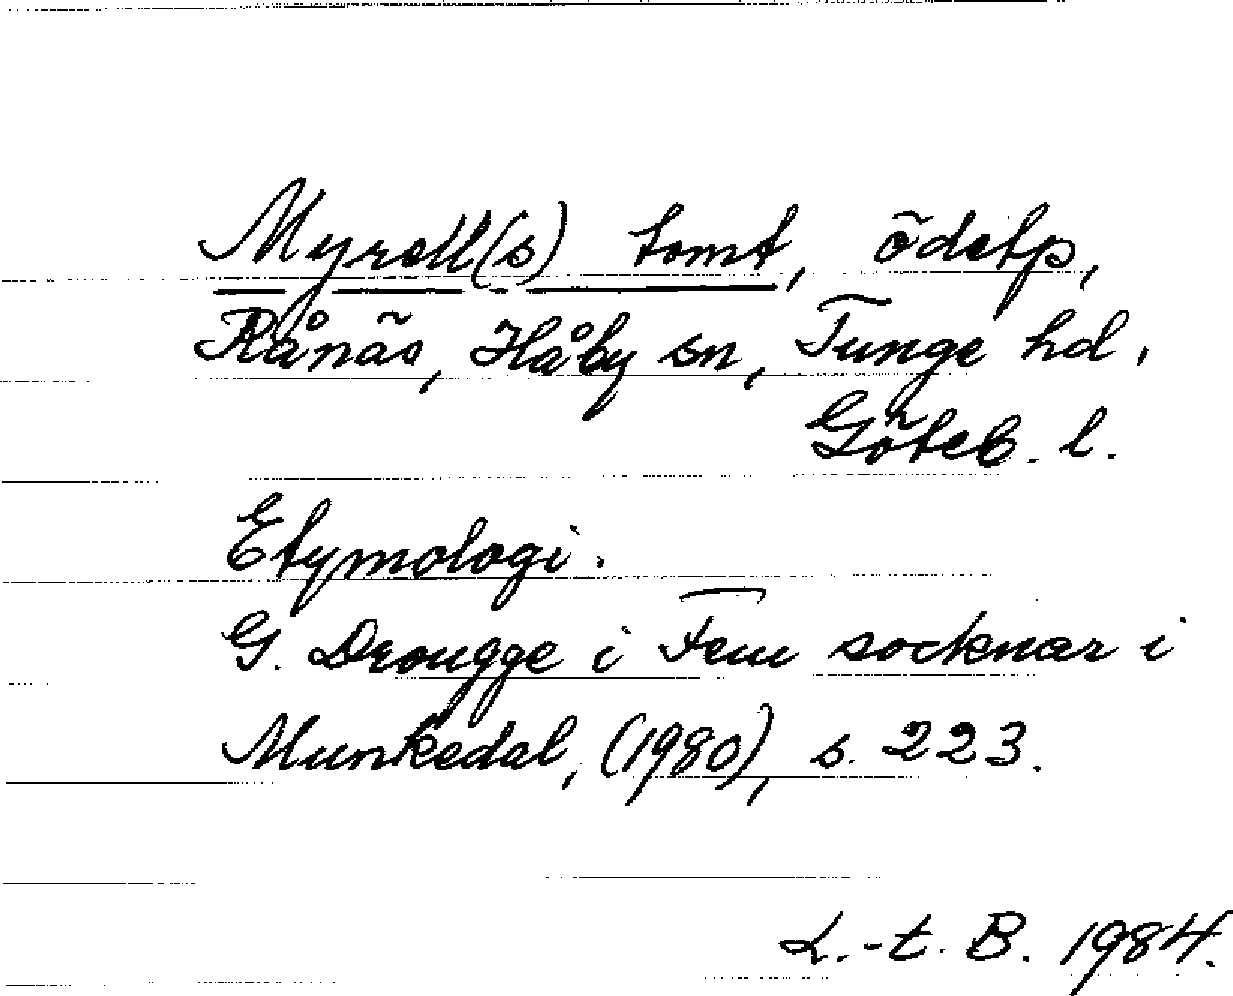 Myrell(s) tomt, ödetp,
Rånäs, Håby sn, Tunge hd,
Göteb. l.
Etymologi.
G. Drougge i Fem socknar i
Munkedal, (1980), s. 223.
L.-t. B. 1984.